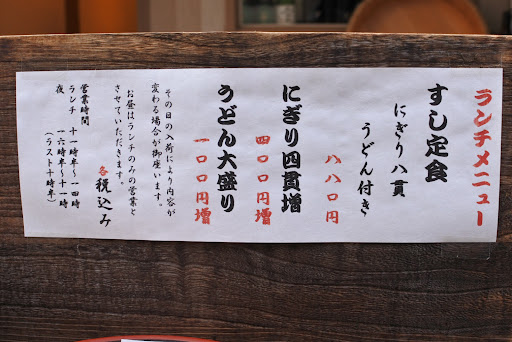 ランチメニュー
すし定食
にぎり八貫
うどん付き
八八〇円
にぎり四貫増
四〇〇円増
うどん大盛り
一〇〇円増
その日の入荷により内容が
変わる場合が御座います。
お昼はランチのみの営業と
させていただきます。
各税込み
営業時間
ランチ 十一時半〜一四時
夜 一六時半〜十一時
(ラスト十時半)